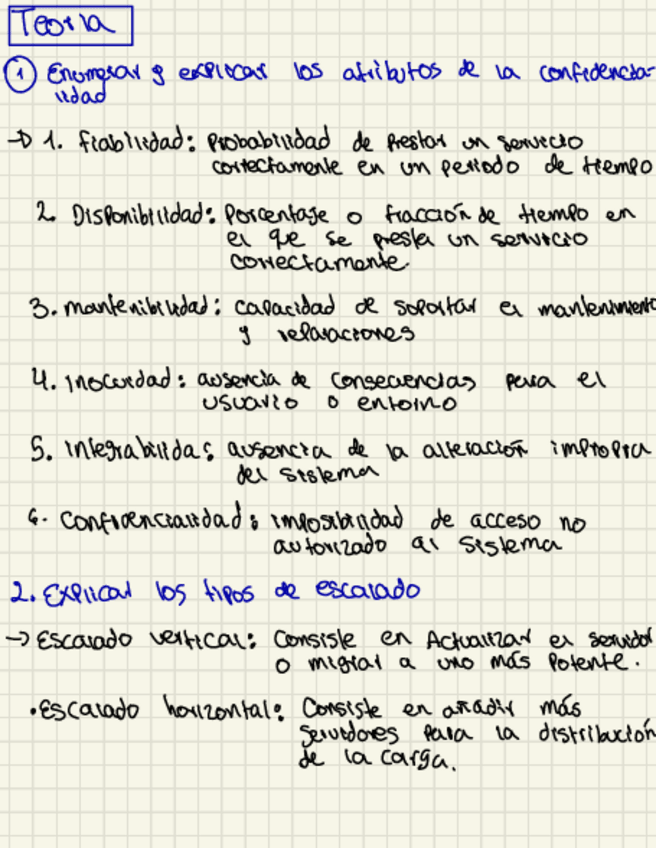 Teoría
1 Enumerar y explicar los atributos de la confidencia-
lidad
→ 1. fiabilidad: Probabilidad de Prestar un servicio
correctamente en un periodo de tiempo
2. Disponibilidad: Porcentaje o fracción de tiempo en
el que se presta un servicio
correctamente.
3. mantenibilidad: capacidad de soportar el mantenimiento
y reparaciones
4. inocuidad: ausencia de consecuencias para el
usuario o entorno
5. integrabilida: ausencia de la alteración impropia
del sistema
6. Confidencialidad: imposibilidad de acceso no
autorizado al sistema
2. Explicar los tipos de escalado
→ Escalado vertical: Consiste en Actualizar el servidor
o migrar a uno más Potente.
• Escalado horizontal: Consiste en añadir más
servidores Para la distribución
de la carga.